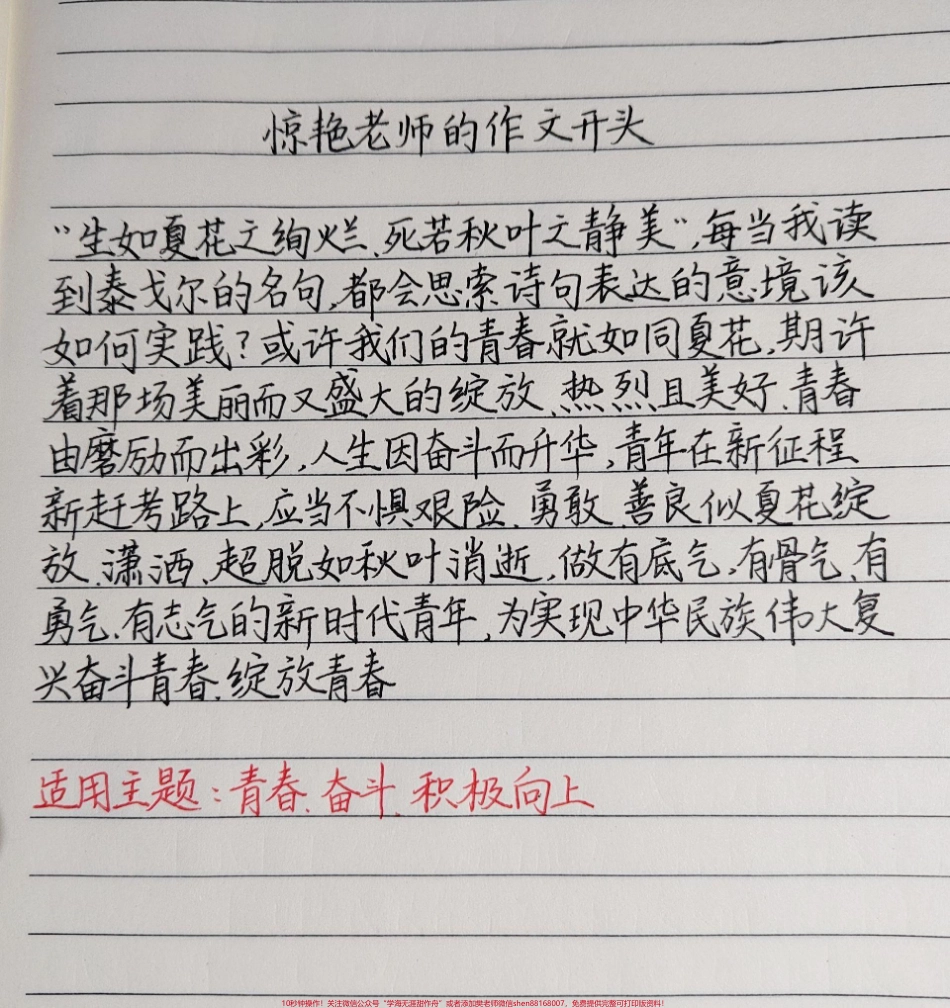 惊艳老师的作文开头
“生如夏花之绚烂、死若秋叶之静美”,每当我读
到泰戈尔的名句,都会思索诗句表达的意境该
如何实践?或许我们的青春就如同夏花,期许
着那场美丽而又盛大的绽放、热烈且美好、青春
由磨励而出彩,人生因奋斗而升华,青年在新征程
新赶考路上,应当不惧艰险、勇敢、善良似夏花绽
放、潇洒、超脱如秋叶消逝,做有底气、有骨气、有
勇气、有志气的新时代青年,为实现中华民族伟大复
兴奋斗青春、绽放青春
适用主题:青春、奋斗、积极向上
10秒钟操作!关注微信公众号“学海无涯甜作舟”或者添加樊老师微信shen88168007,免费提供完整可打印版资料!